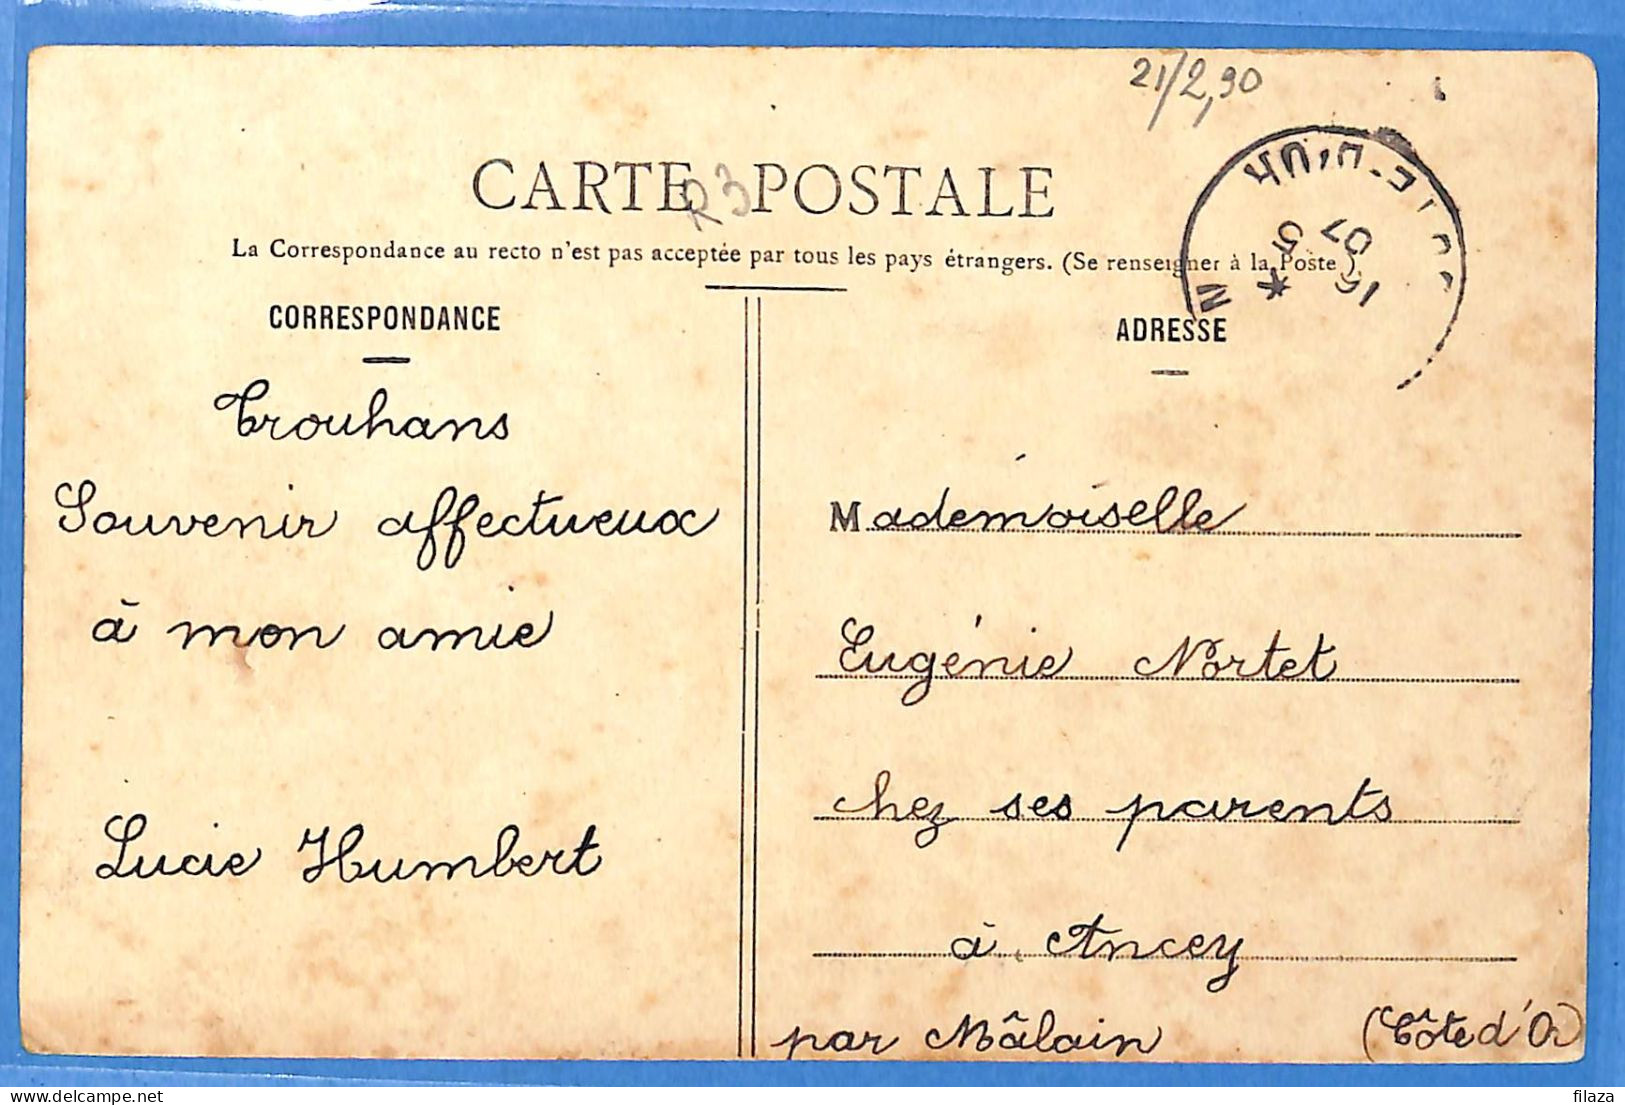 21/2,90
CARTE POSTALE
R 3
La Correspondance au recto n'est pas acceptée par tous les pays étrangers. (Se renseigner à la Poste)
CORRESPONDANCE
Trouhans
Souvenir affectueux
à mon amie
Lucie Humbert
ADRESSE
Mademoiselle
Eugénie Nortet
chez ses parents
à Ancey
par Mâlain (Côte d'Or)
07 5
filaza